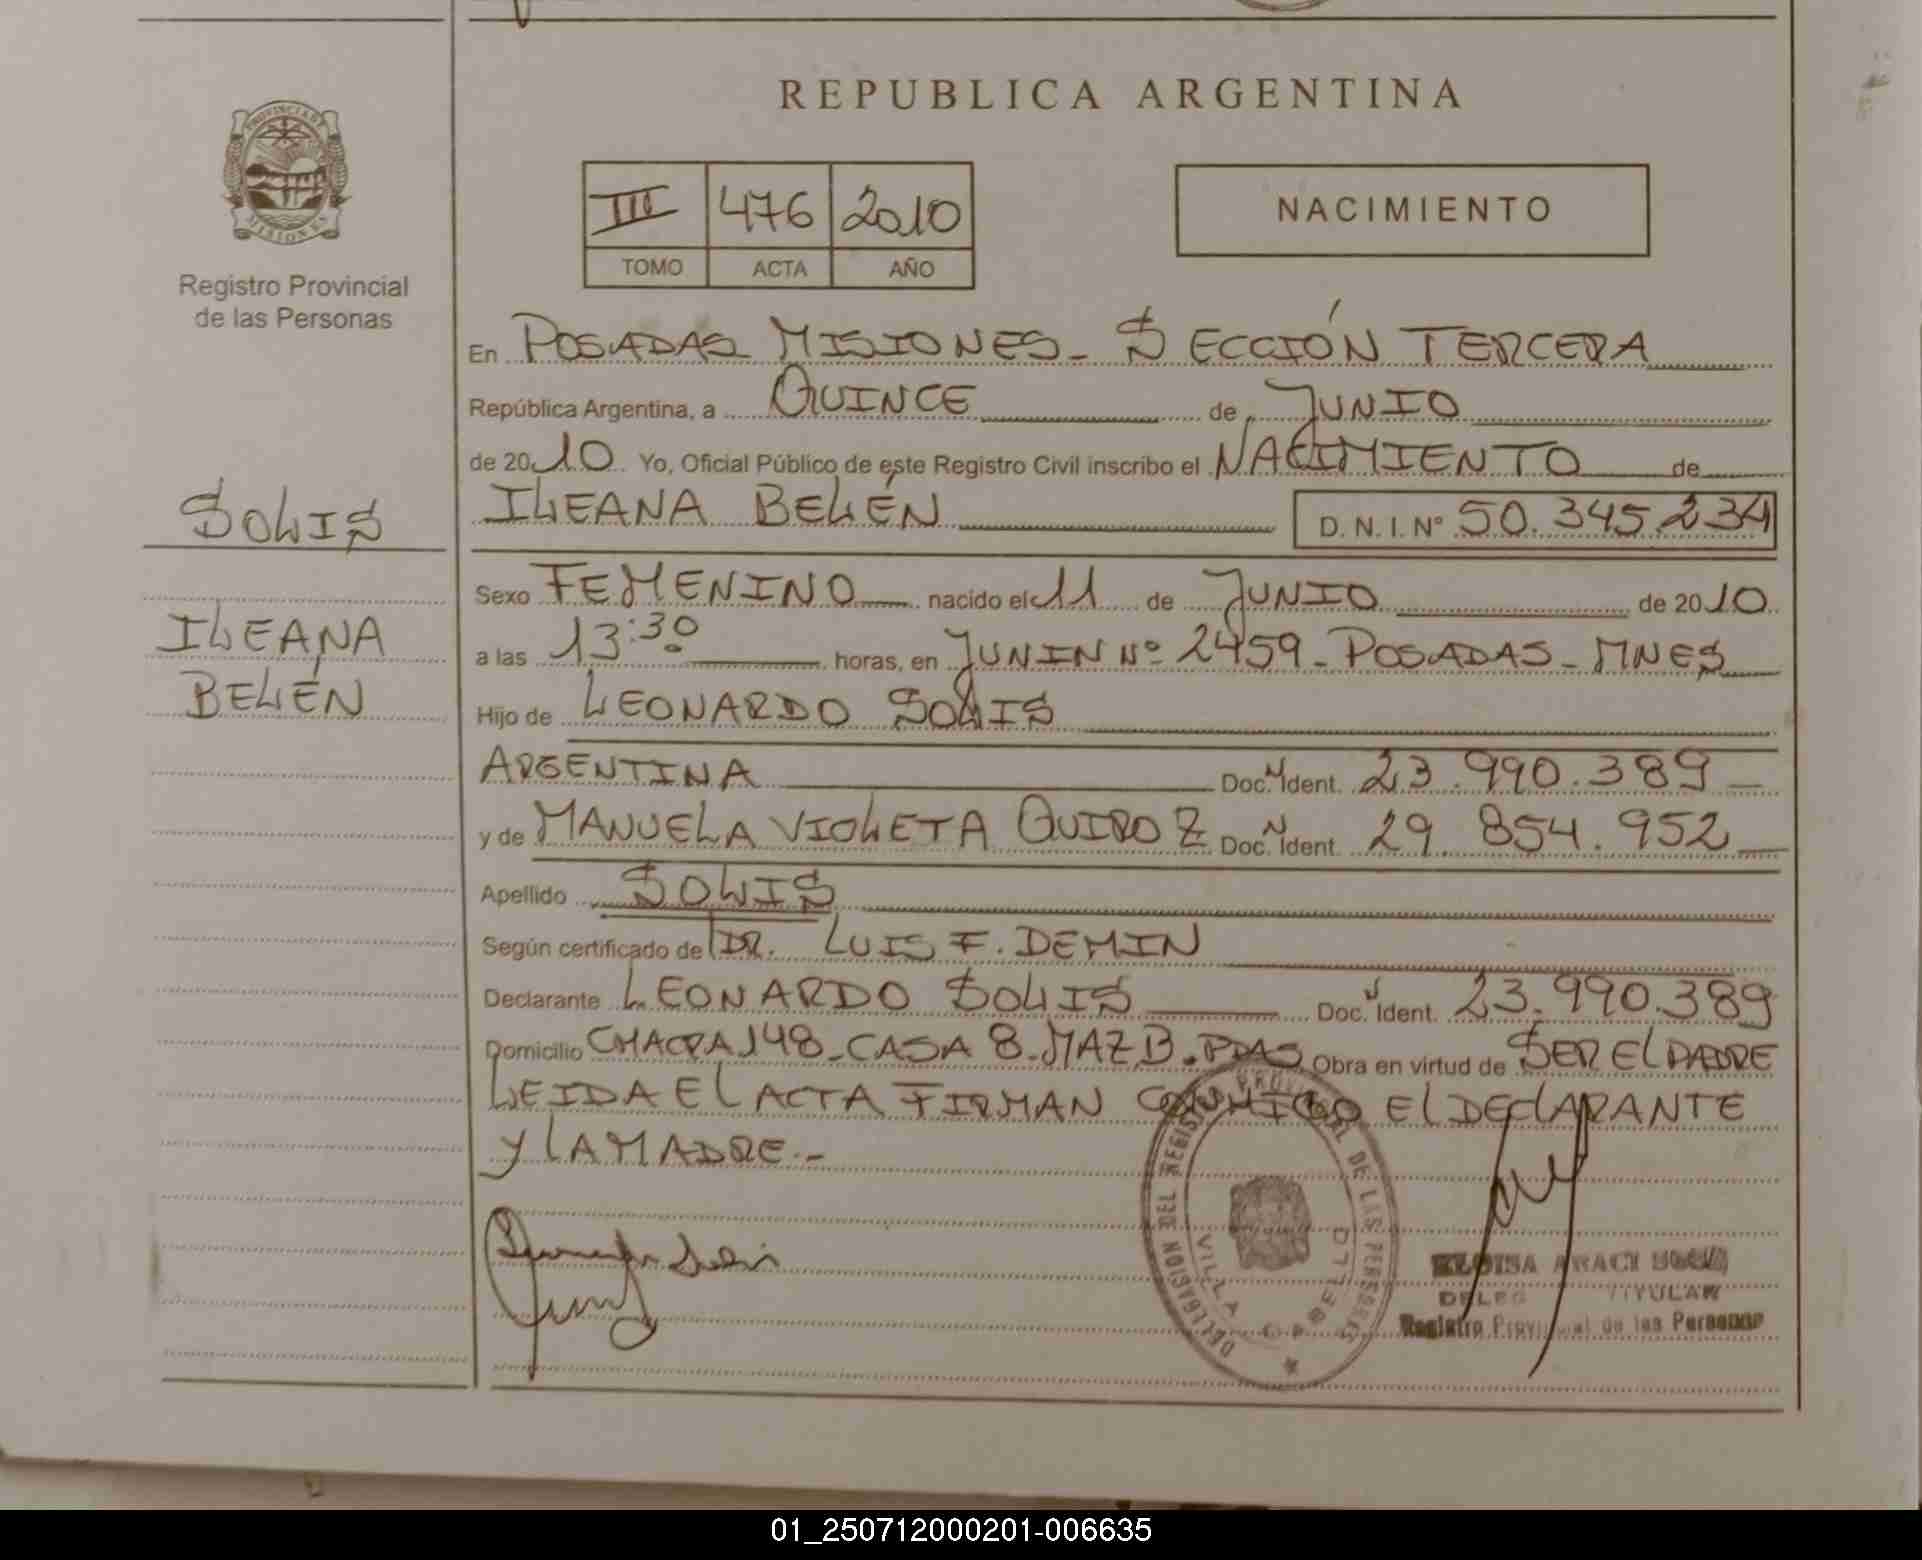 REPUBLICA ARGENTINA
PROVINCIA DE MISIONES
Registro Provincial
de las Personas
III 476 2010
TOMO ACTA AÑO
NACIMIENTO
En POSADAS MISIONES - SECCIÓN TERCERA
República Argentina, a QUINCE de JUNIO
de 2010 Yo, Oficial Público de este Registro Civil inscribo el NACIMIENTO de
SOLIS
ILEANA BELÉN D.N.I.Nº 50.345.234
Sexo FEMENINO nacido el 11 de JUNIO de 2010
ILEANA
BELÉN
a las 13:30 horas, en JUNIN Nº 2459 - POSADAS - MNES
Hijo de LEONARDO SOLIS
ARGENTINA Doc. Ident. 23.990.389
y de MANUELA VIOLETA QUIROZ Doc. Ident. 29.854.952
Apellido SOLIS
Según certificado de DR. LUIS F. DEMIN
Declarante LEONARDO SOLIS Doc. Ident. 23.990.389
Domicilio CHACRA 148 - CASA 8 - MAZ B. PDAS Obra en virtud de SER EL PADRE
LEIDA EL ACTA FIRMAN CONMIGO EL DECLARANTE
Y LA MADRE.-
DELEGACION DEL REGISTRO PROVINCIAL DE LAS PERSONAS
VILLA CABELLO
ELOISA ARACI
TITULAR
Registro Provincial de las Personas
01_250712000201-006635